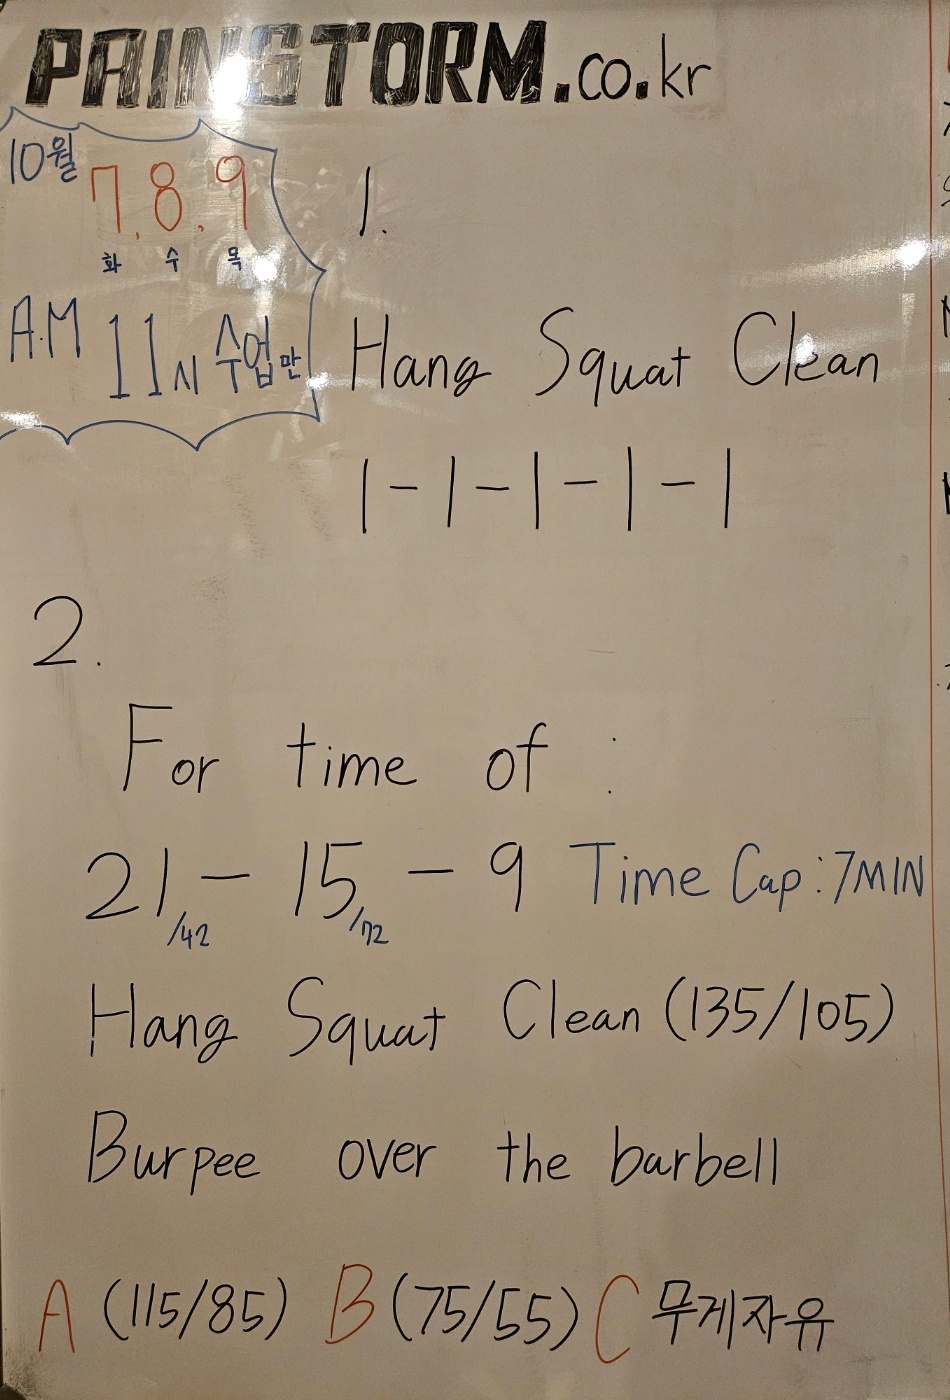 PAINSTORM.co.kr
10월 7, 8, 9
화 수 목
A.M 11시 수업만
1.
Hang Squat Clean
1-1-1-1-1
2.
For time of :
21 - 15 - 9 Time Cap : 7MIN
/42 /72
Hang Squat Clean (135/105)
Burpee over the barbell
A (115/85) B (75/55) C 무게자유